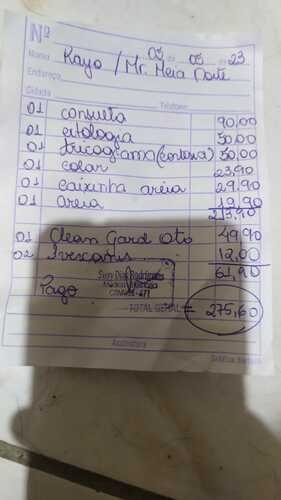 Nº
05 de 05 de 23
Nome Kayo / Mr. Meia Noite
Endereço
Cidade Telefone
01 consulta 90,00
01 citologia 50,00
01 tricograma (cortesia) 50,00
01 colar 23,90
01 caixinha areia 29,90
01 areia 19,90
213,90
01 Clean Gard Oto 49,90
02 12,00
61,90
Suen Dias Rodrigues
Pago
TOTAL GERAL = 275,60
Assinatura